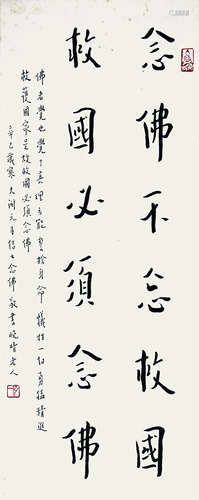 念佛不忘救國
救國必須念佛
佛者覺也覺了真理乃能誓捨身命犧牲一切勇猛精進
救護國家是故救國必須念佛
辛巳歲寒大開元寺結七念佛敬書晚晴老人